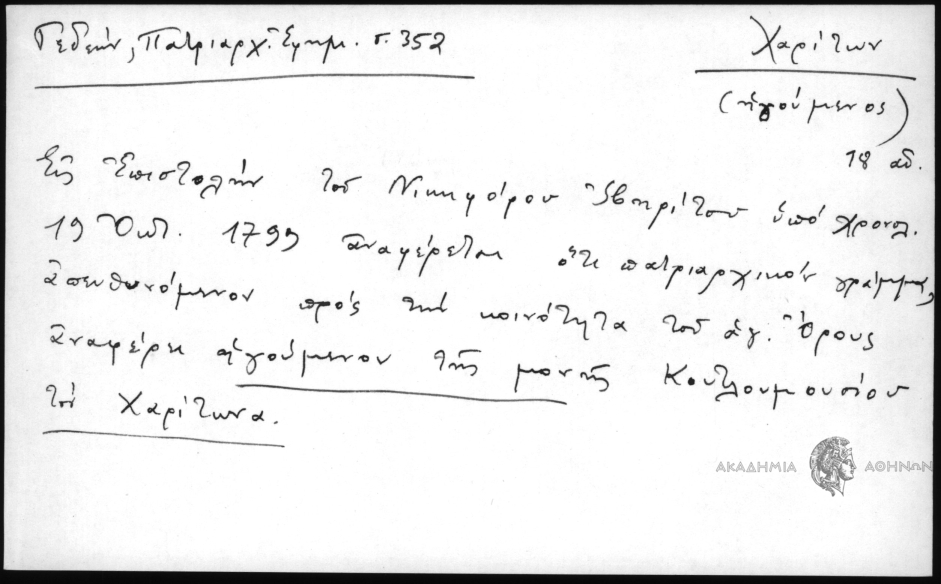 Γεδεών, Πατριαρχ. Ἐφημ. σ. 352
Χαρίτων
(ἡγούμενος)
18 αἰ.
Εἰς Ἐπιστολὴν τοῦ Νικηφόρου Ἰβηρίτου ὑπὸ χρονολ.
19 Ὀκτ. 1799 ἀναφέρεται ὅτι πατριαρχικὸν γράμμα,
ἀπευθυνόμενον πρὸς τὴν κοινότητα τοῦ ἁγ. Ὄρους
ἀναφέρει ἡγούμενον τῆς μονῆς Κουτλουμουσίου
τὸν Χαρίτωνα.
ΑΚΑΔΗΜΙΑ ΑΘΗΝΩΝ